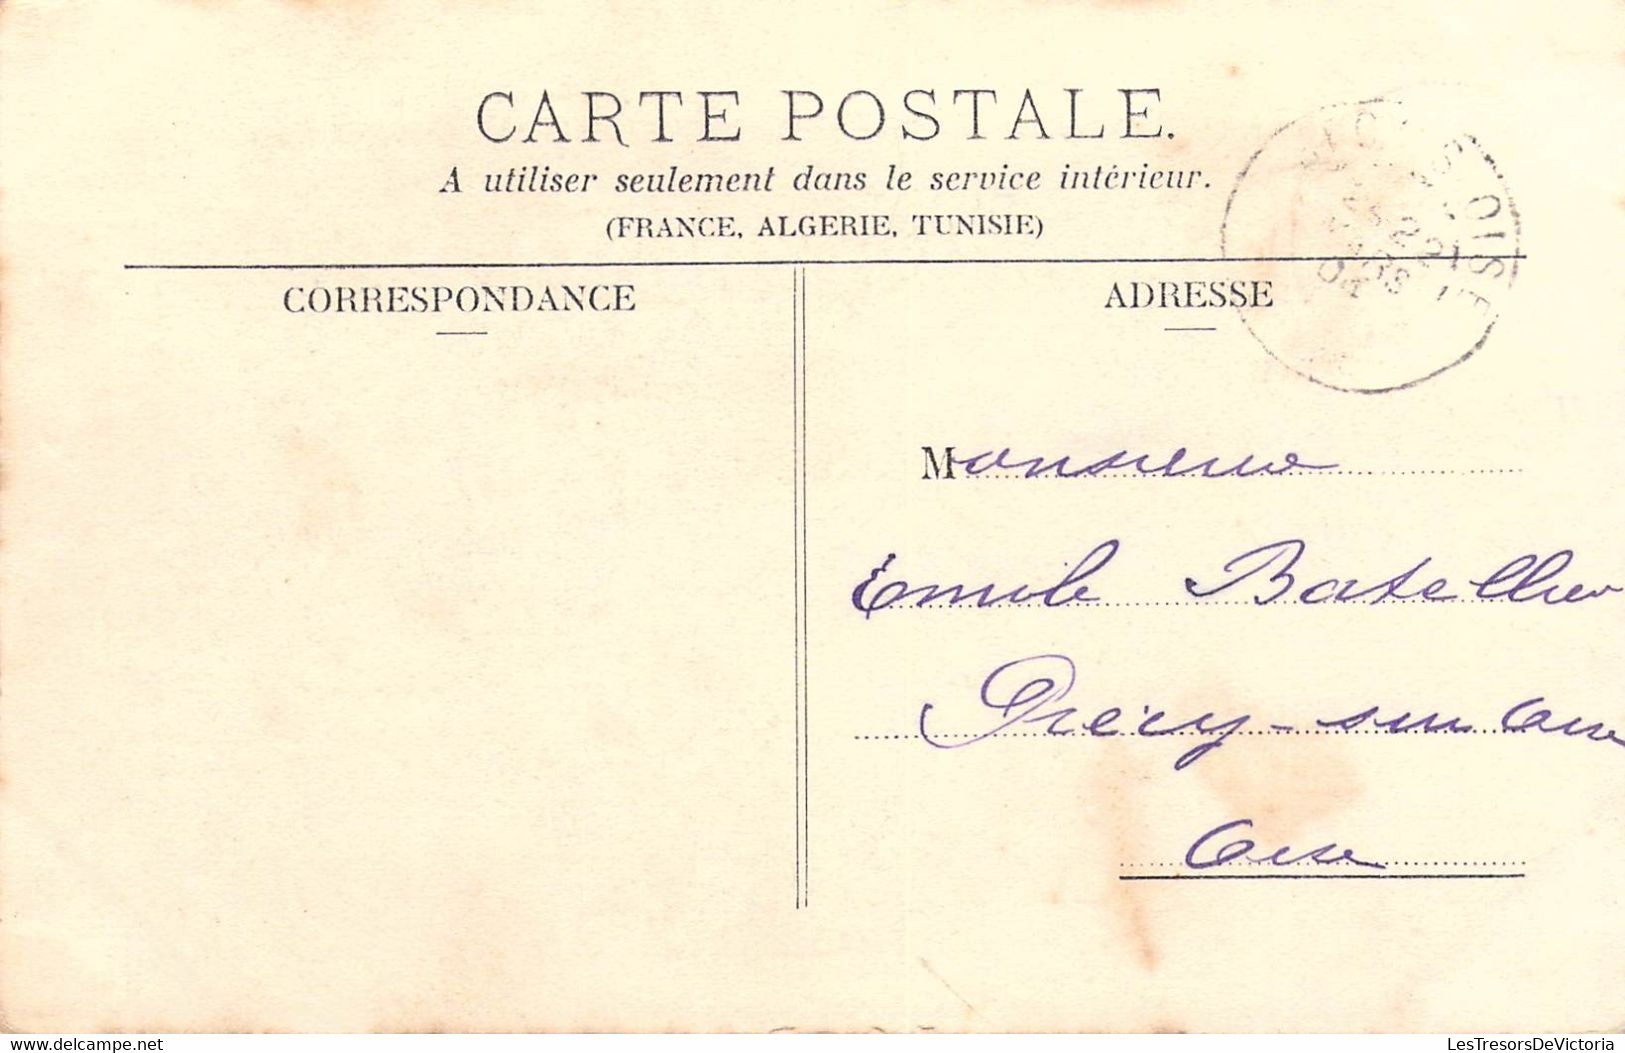 CARTE POSTALE.
A utiliser seulement dans le service intérieur.
(FRANCE, ALGERIE, TUNISIE)
CORRESPONDANCE
ADRESSE
OISE
04
Monsieur
Emile Batellier
Précy-sur Oise
Oise
Delcampe.net
LesTresorsDeVictoria